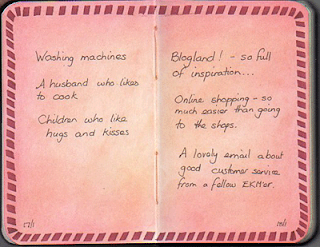 Washing machines
A husband who likes
to cook
Children who like
hugs and kisses
17/1
Blogland! - so full
of inspiration...
Online shopping - so
much easier than going
to the shops.
A lovely email about
good customer service
from a fellow EKM'er.
18/1